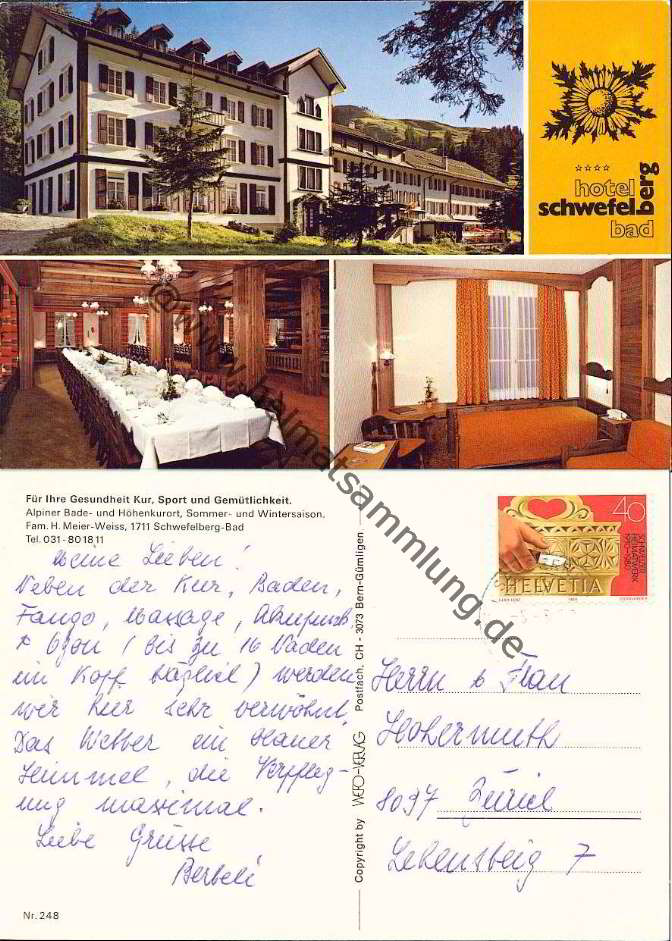 hotel
schwefelberg
bad
Für Ihre Gesundheit Kur, Sport und Gemütlichkeit.
Alpiner Bade- und Höhenkurort, Sommer- und Wintersaison.
Fam. H. Meier-Weiss, 1711 Schwefelberg-Bad
Tel. 031 - 80 18 11
Meine Lieben!
Neben der Kur, Baden,
Fango, Massage, Akupunkt.
& Ozon (bis zu 16 Nadeln
im Kopf täglich) werden
wir hier sehr verwöhnt.
Das Wetter ein blauer
Himmel, die Verpfleg-
ung maximal.
Liebe Grüsse
Berbeli
Nr. 248
Copyright by WERO-VERLAG Postfach, CH - 3073 Bern-Gümligen
40
SCHWEIZER
HEIMATWERK
1930-1980
HELVETIA
Herrn & Frau
Hohermuth
8037 Zürich
7
©www.heimatsammlung.de